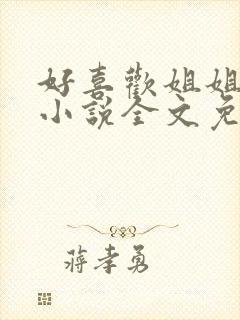 好喜歡姐姐
小說全文免
蔣孝勇